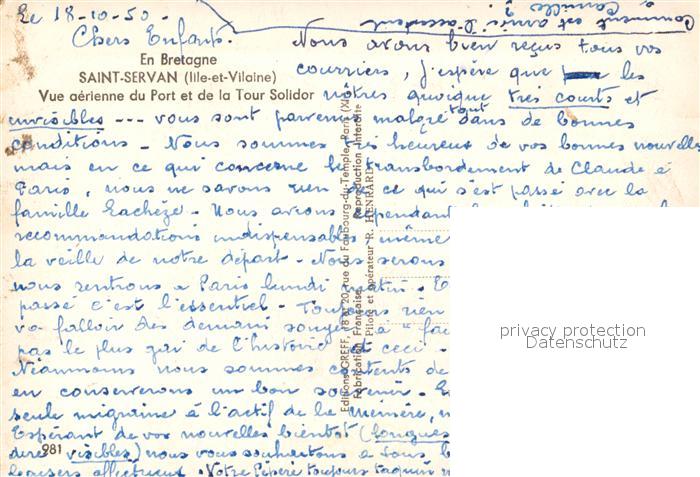 Le 18-10-50-
Comment est arrivé l'accident à Camille ?
Chers Enfants.
En Bretagne
SAINT-SERVAN (Ille-et-Vilaine)
Vue aérienne du Port et de la Tour Solidor
Nous avons bien reçus tous vos
courriers, j'espère que les
nôtres quoique très courts et
invisibles --- vous sont parvenus malgré tout dans de bonnes
conditions - Nous sommes heureux de vos bonnes nouvelles
mais en ce qui concerne le transbordement de Claude à
Paris, nous ne savons rien de ce qui s'est passé avec la
famille Lachèze - Nous avions cependant
recommandations indispensables même
la veille de notre départ - Nous serons
nous rentrons à Paris lundi matin -
passé c'est l'essentiel - Toujours rien
va falloir dès demain songer à "
pas le plus gai de l'histoire et ceci -
Néanmoins nous sommes contents de
en conserverons un bon souvenir -
seule migraine à l'actif de la Mémère,
Espérant de vos nouvelles bientôt (longues
dire visibles) nous vous souhaitons à tous
baisers affectueux - Votre Pépère toujours taquin
981
Editions GREFF, 18 et 20, rue du Faubourg-du-Temple, Paris (XIe)
Fabrication Française Reproduction Interdite
Pilote et opérateur R. HENRARD
privacy protection
Datenschutz